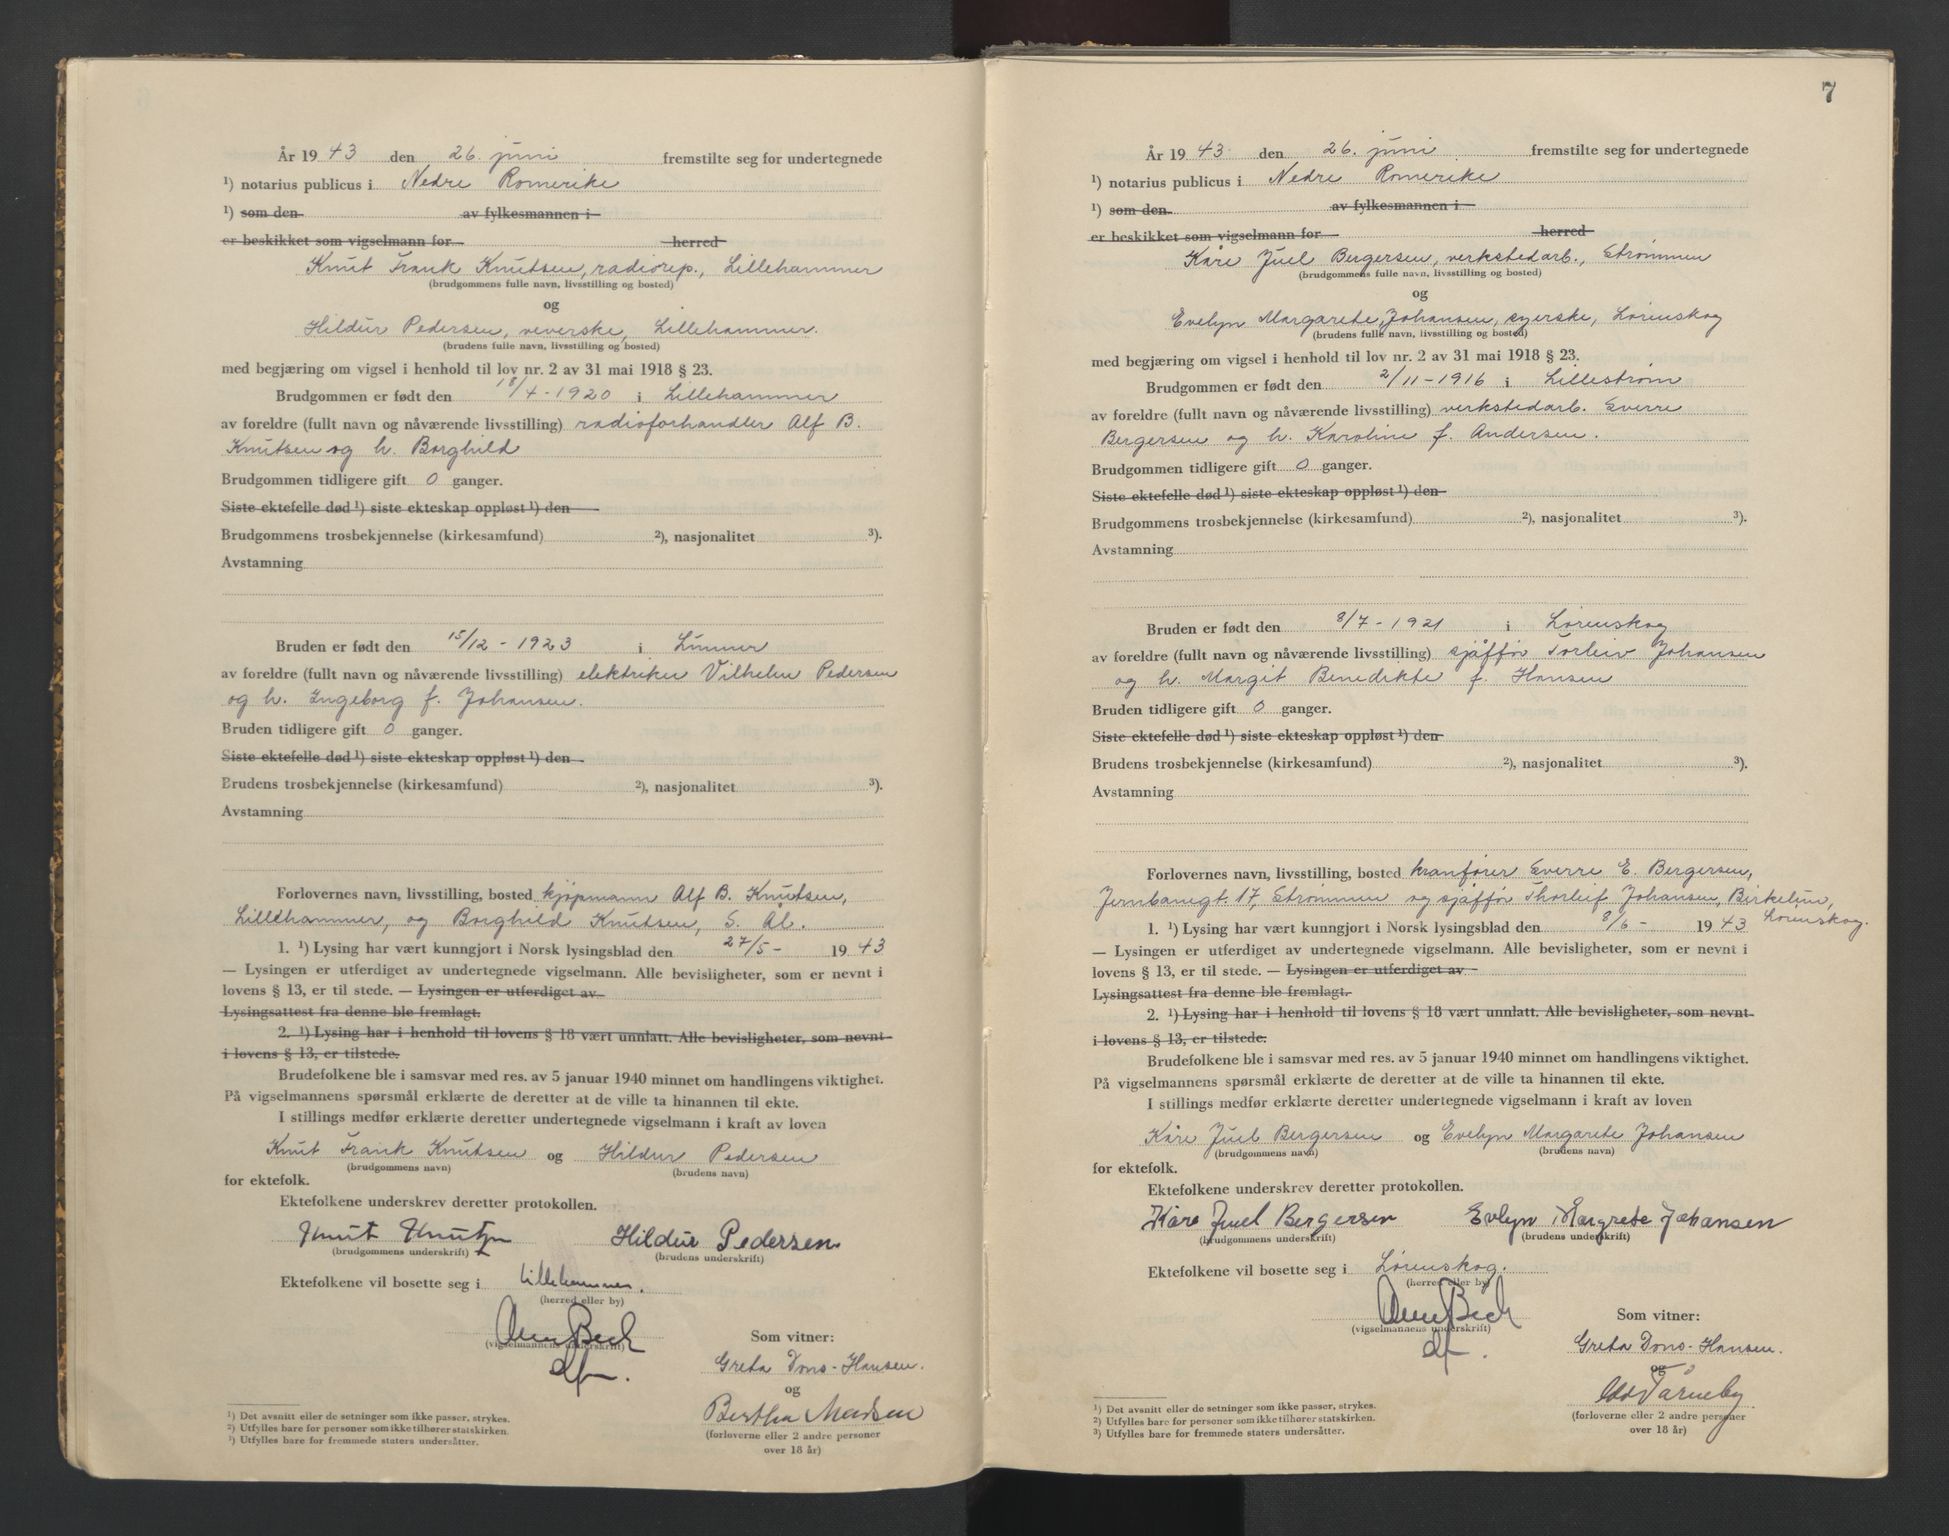 År 1943 den 26. juni fremstilte seg for undertegnede
¹) notarius publicus i Nedre Romerike
¹) som den av fylkesmannen i
er beskikket som vigselmann for herred
Knut Frank Knutsen, radiorep., Lillehammer
(brudgommens fulle navn, livsstilling og bosted)
og
Hildur Pedersen, veverske, Lillehammer.
(brudens fulle navn, livsstilling og bosted)
med begjæring om vigsel i henhold til lov nr. 2 av 31 mai 1918 § 23.
Brudgommen er født den 18/4-1920 i Lillehammer
av foreldre (fullt navn og nåværende livsstilling) radioforhandler Alf B.
Knutsen og h. Borghild
Brudgommen tidligere gift 0 ganger.
Siste ektefelle død ¹) siste ekteskap oppløst ¹) den
Brudgommens trosbekjennelse (kirkesamfund) ²), nasjonalitet ³).
Avstamning
Bruden er født den 15/12-1923 i Lunner
av foreldre (fullt navn og nåværende livsstilling) elektriker Vilhelm Pedersen
og h. Ingeborg f. Johansen.
Bruden tidligere gift 0 ganger.
Siste ektefelle død ¹) siste ekteskap oppløst ¹) den
Brudens trosbekjennelse (kirkesamfund) ²), nasjonalitet ³).
Avstamning
Forlovernes navn, livsstilling, bosted kjøpmann Alf B. Knutsen,
Lillehammer, og Borghild Knutsen, S. Ål.
1. ¹) Lysing har vært kunngjort i Norsk lysingsblad den 27/5- 1943
— Lysingen er utferdiget av undertegnede vigselmann. Alle bevisligheter, som er nevnt i
lovens § 13, er til stede. — Lysingen er utferdiget av
Lysingsattest fra denne ble fremlagt.
2. ¹) Lysing har i henhold til lovens § 18 vært unnlatt. Alle bevisligheter, som nevnt
i lovens § 13, er tilstede.
Brudefolkene ble i samsvar med res. av 5 januar 1940 minnet om handlingens viktighet.
På vigselmannens spørsmål erklærte de deretter at de ville ta hinannen til ekte.
I stillings medfør erklærte deretter undertegnede vigselmann i kraft av loven
Knut Frank Knutsen og Hildur Pedersen
(brudgommens navn) (brudens navn)
for ektefolk.
Ektefolkene underskrev deretter protokollen.
Knut Knutsen Hildur Pedersen
(brudgommens underskrift) (brudens underskrift)
Ektefolkene vil bosette seg i Lillehammer.
(herred eller by)
Bech
(vigselmannens underskrift) Som vitner:
df. Greta Dons-Hansen.
og
Bertha Madsen
(forloverne eller 2 andre personer
over 18 år)
¹) Det avsnitt eller de setninger som ikke passer, strykes.
²) Utfylles bare for personer som ikke tilhører statskirken.
³) Utfylles bare for fremmede staters undersåtter.
7
År 1943 den 26. juni fremstilte seg for undertegnede
¹) notarius publicus i Nedre Romerike
¹) som den av fylkesmannen i
er beskikket som vigselmann for herred
Kåre Juel Bergersen, verkstedarb., Strømmen
(brudgommens fulle navn, livsstilling og bosted)
og
Evelyn Margarete Johansen, syerske, Lørenskog
(brudens fulle navn, livsstilling og bosted)
med begjæring om vigsel i henhold til lov nr. 2 av 31 mai 1918 § 23.
Brudgommen er født den 2/11-1916 i Lillestrøm
av foreldre (fullt navn og nåværende livsstilling) verkstedarb. Sverre
Bergersen og h. Karoline f. Andersen.
Brudgommen tidligere gift 0 ganger.
Siste ektefelle død ¹) siste ekteskap oppløst ¹) den
Brudgommens trosbekjennelse (kirkesamfund) ²), nasjonalitet ³).
Avstamning
Bruden er født den 8/7-1921 i Lørenskog
av foreldre (fullt navn og nåværende livsstilling) sjåffør Torleiv Johansen
og h. Margit Benedikte f. Hansen
Bruden tidligere gift 0 ganger.
Siste ektefelle død ¹) siste ekteskap oppløst ¹) den
Brudens trosbekjennelse (kirkesamfund) ²), nasjonalitet ³).
Avstamning
Forlovernes navn, livsstilling, bosted kranfører Sverre E. Bergersen,
Jernbanegt. 17, Strømmen og sjåffør Thorleif Johansen, Birkelun,
Lørenskog.
1. ¹) Lysing har vært kunngjort i Norsk lysingsblad den 8/6- 1943
— Lysingen er utferdiget av undertegnede vigselmann. Alle bevisligheter, som er nevnt i
lovens § 13, er til stede. — Lysingen er utferdiget av
Lysingsattest fra denne ble fremlagt.
2. ¹) Lysing har i henhold til lovens § 18 vært unnlatt. Alle bevisligheter, som nevnt
i lovens § 13, er tilstede.
Brudefolkene ble i samsvar med res. av 5 januar 1940 minnet om handlingens viktighet.
På vigselmannens spørsmål erklærte de deretter at de ville ta hinannen til ekte.
I stillings medfør erklærte deretter undertegnede vigselmann i kraft av loven
Kåre Juel Bergersen og Evelyn Margarete Johansen
(brudgommens navn) (brudens navn)
for ektefolk.
Ektefolkene underskrev deretter protokollen.
Kåre Juel Bergersen Evlyn Margrete Johansen
(brudgommens underskrift) (brudens underskrift)
Ektefolkene vil bosette seg i Lørenskog.
(herred eller by)
Bech
(vigselmannens underskrift) Som vitner:
df. Greta Dons-Hansen.
og
Odd Tårneby
(forloverne eller 2 andre personer
over 18 år)
¹) Det avsnitt eller de setninger som ikke passer, strykes.
²) Utfylles bare for personer som ikke tilhører statskirken.
³) Utfylles bare for fremmede staters undersåtter.